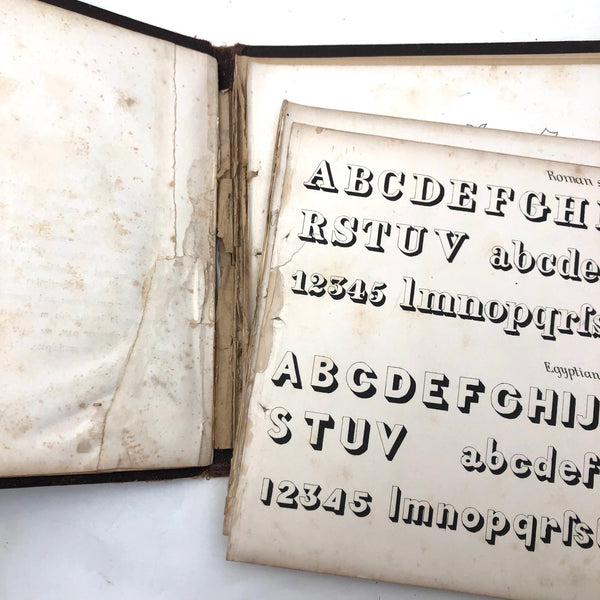 Roman
ABCDEFGHI
RSTUV abcde
12345 lmnopqrſs
Egyptian
ABCDEFGHIJ
STUV abcdef
12345 lmnopqrſs